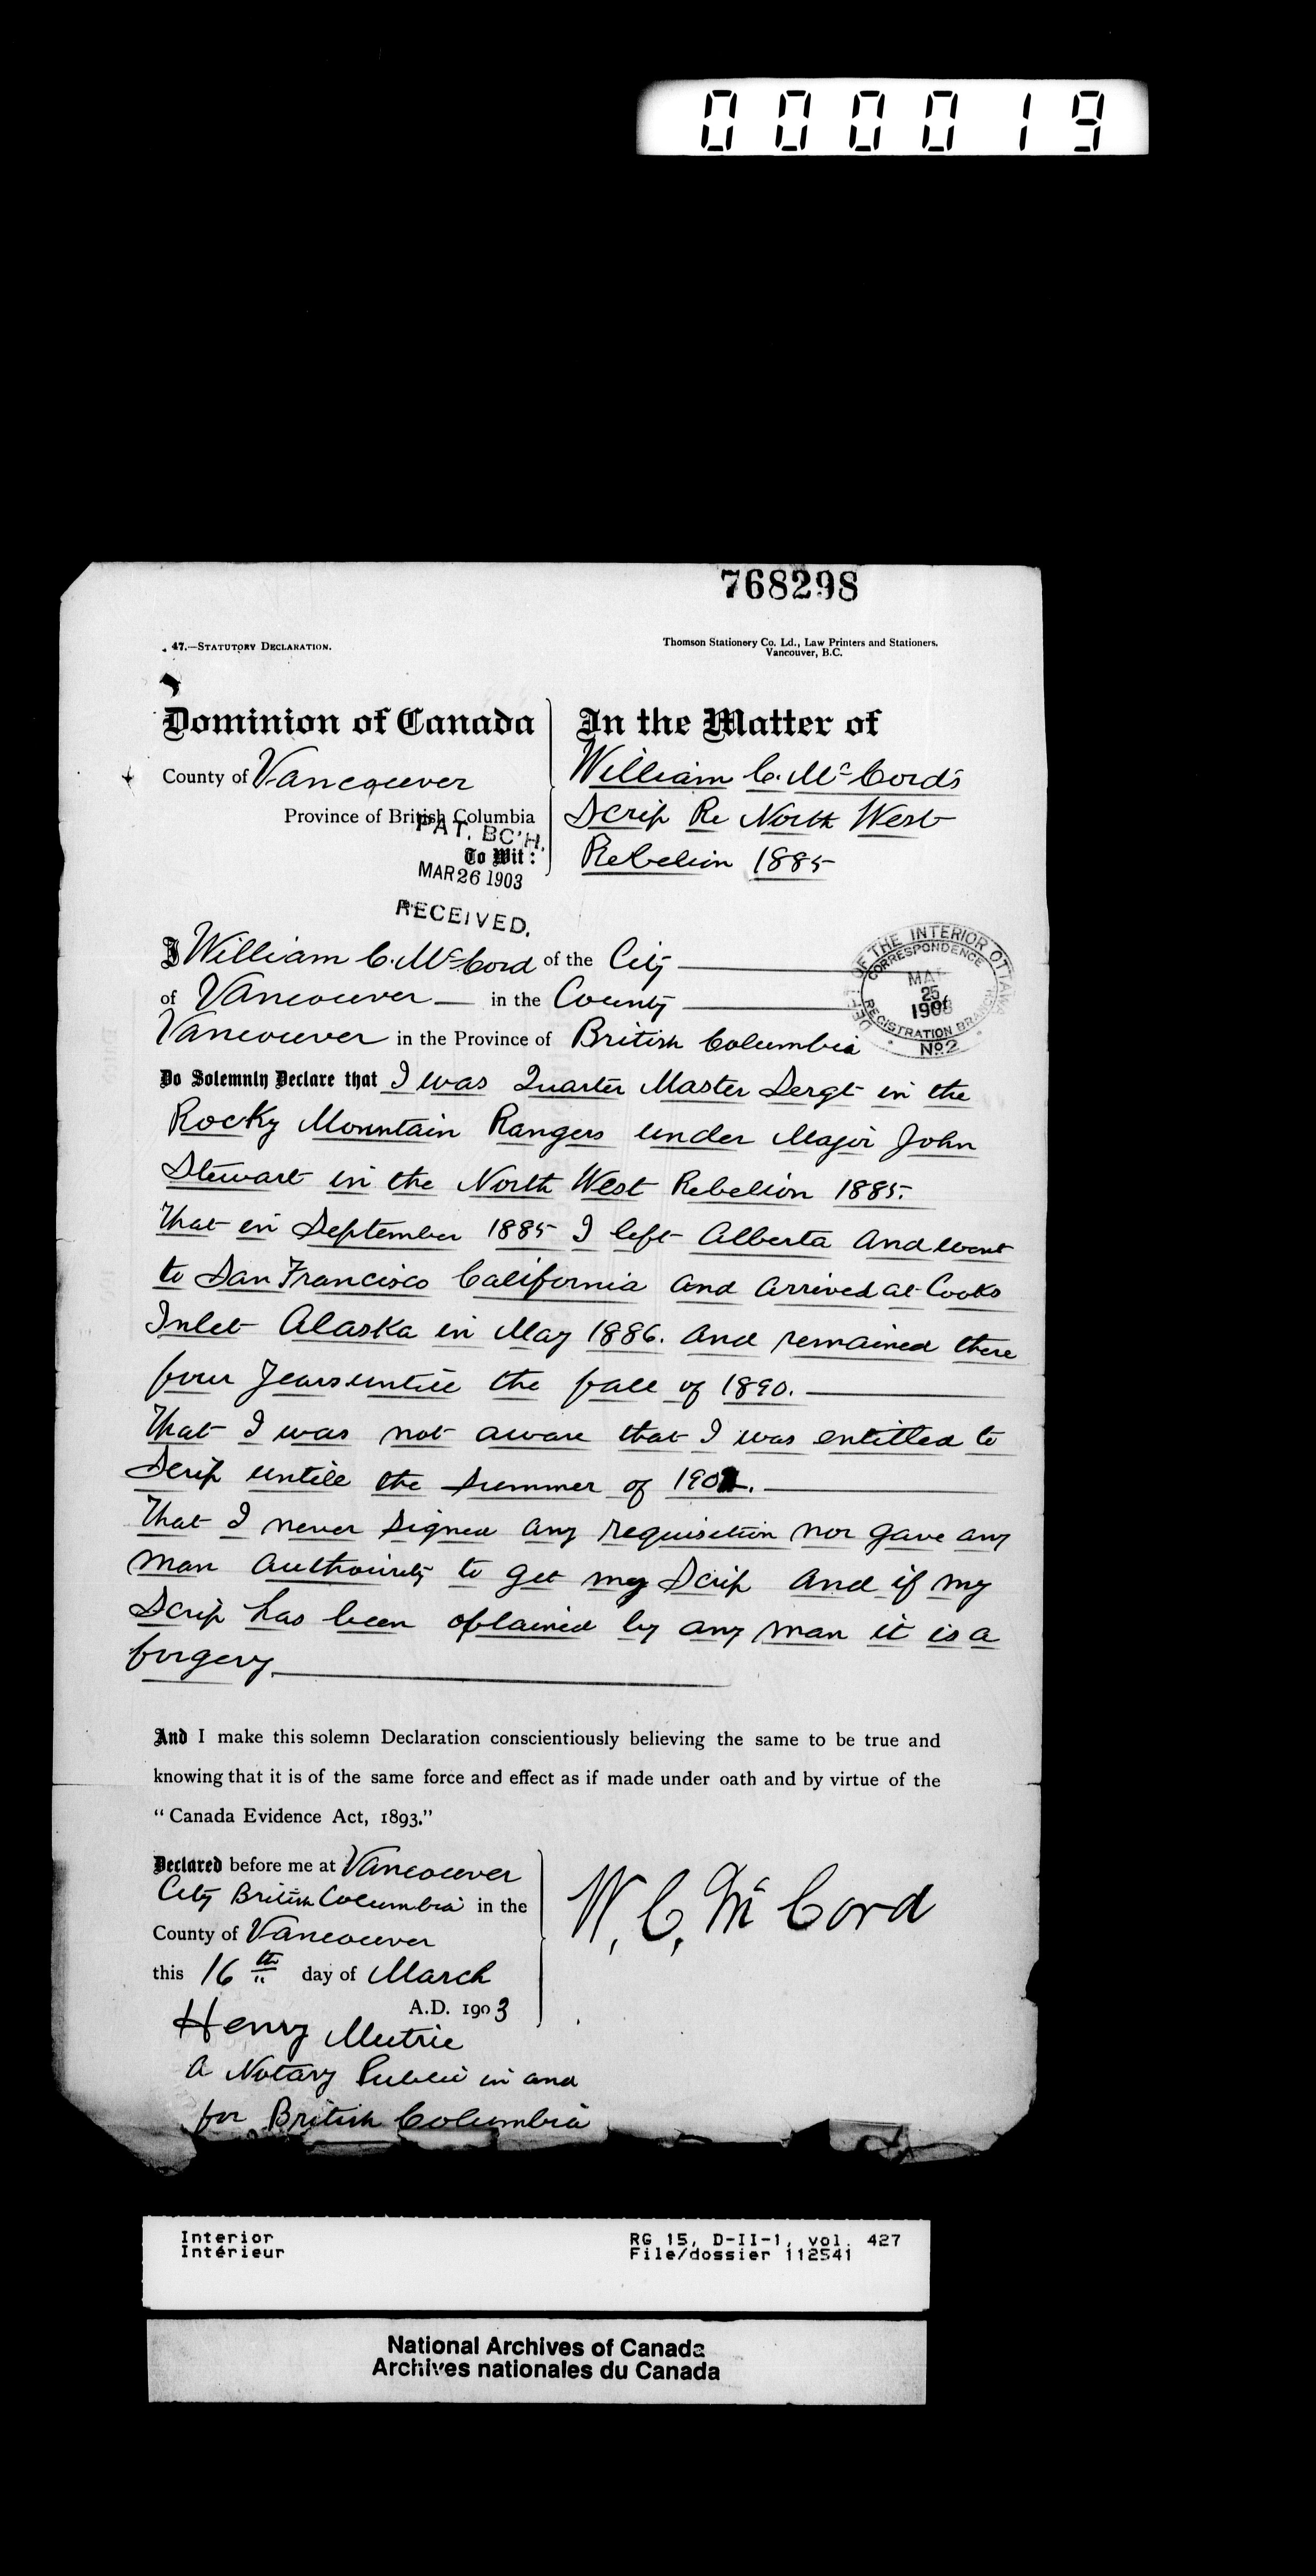 000019
768298
47.—Statutory Declaration.
Thomson Stationery Co. Ld., Law Printers and Stationers.
Vancouver, B.C.
Dominion of Canada
County of Vancouver
Province of British Columbia
To Wit:
In the Matter of
William C. McCord's
Scrip Re North West
Rebelion 1885
PAT. BC'H.
MAR 26 1903
RECEIVED.
I William C. McCord of the City
of Vancouver in the County
Vancouver in the Province of British Columbia
DEPT OF THE INTERIOR OTTAWA
CORRESPONDENCE
25
REGISTRATION BRANCH
No. 2
Do Solemnly Declare that I was Quarter Master Sergt in the
Rocky Mountain Rangers under Major John
Stewart in the North West Rebelion 1885.
That in September 1885 I left Alberta And went
to San Francisco California and Arrived at Cooks
Inlet Alaska in May 1886. And remained there
four Years untill the fall of 1890.
That I was not aware that I was entitled to
Scrip untill the Summer of
That I never Signed any requisition nor gave any
man Authourity to get my Scrip And if my
Scrip has been optained by any man it is a
forgery
And I make this solemn Declaration conscientiously believing the same to be true and
knowing that it is of the same force and effect as if made under oath and by virtue of the
"Canada Evidence Act, 1893."
Declared before me at Vancouver
City British Columbia in the
County of Vancouver
this 16th day of March
A.D. 1903
W. C. McCord
Henry Mutrie
A Notary Public in and
for British Columbia
Interior
Intérieur
RG 15, D-II-1, vol. 427
File/dossier 112541
National Archives of Canada
Archives nationales du Canada